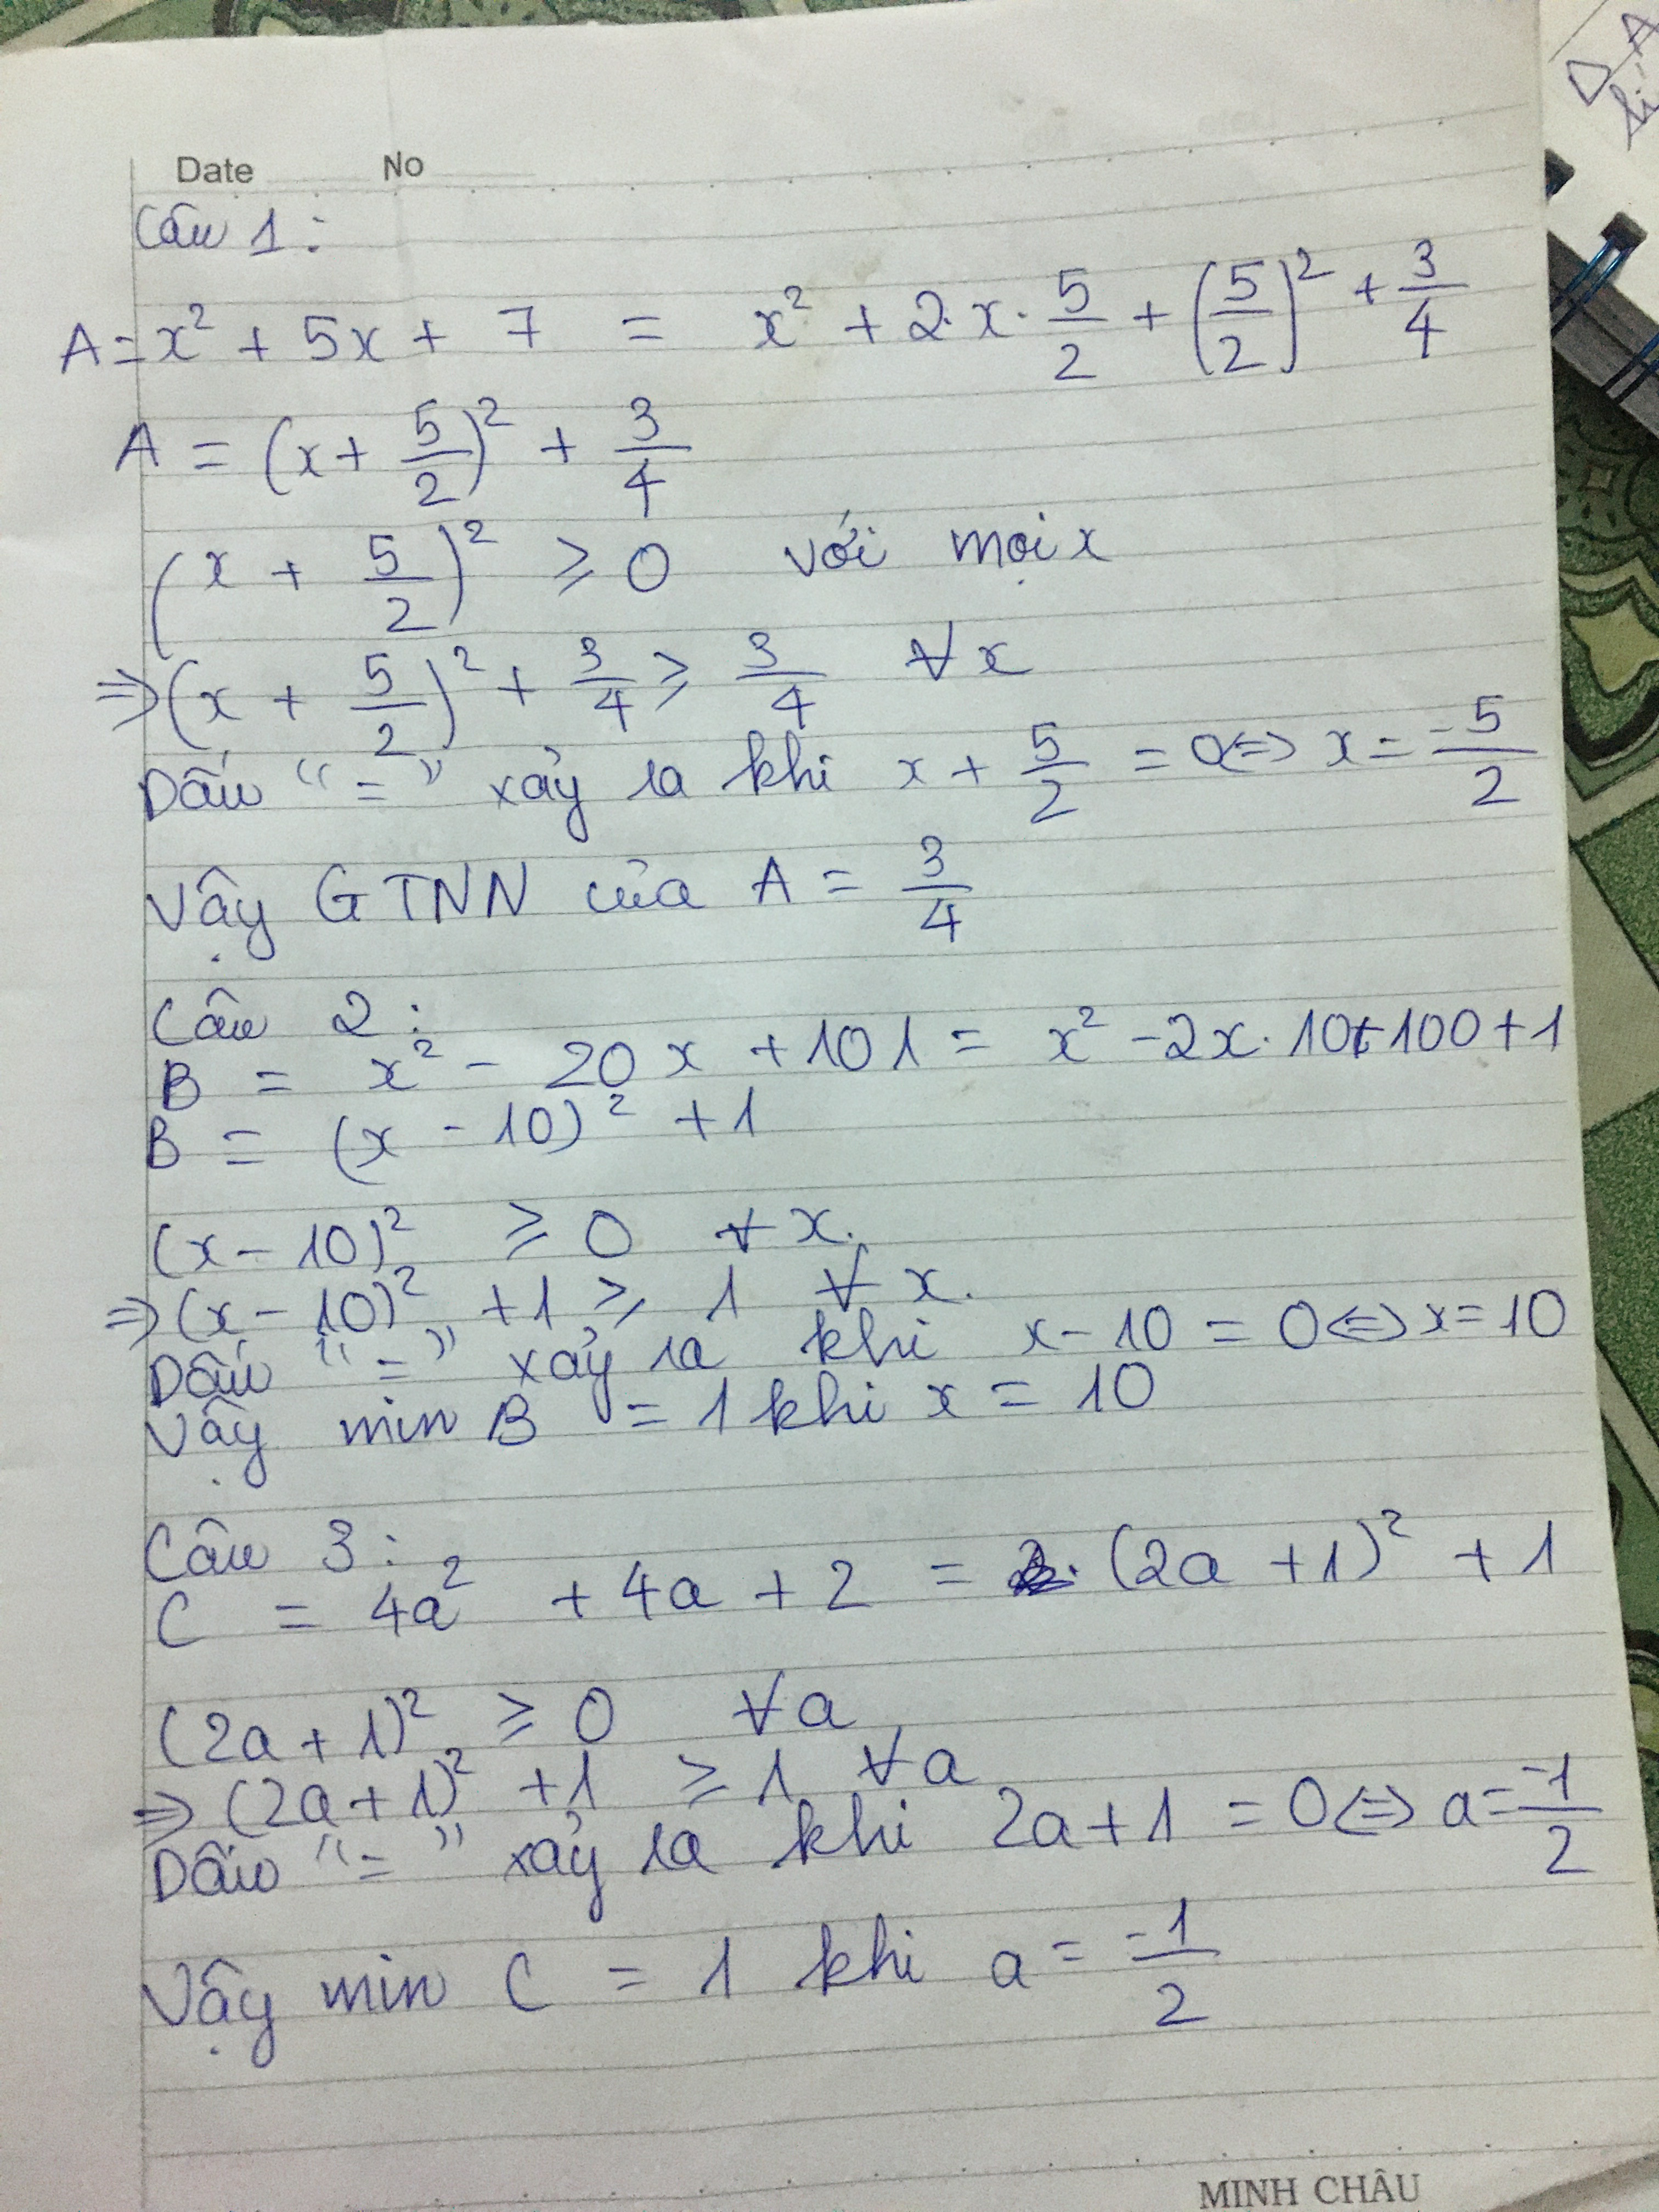 Date No
Câu 1:
A = x² + 5x + 7 = x² + 2·x·5/2 + (5/2)² + 3/4
A = (x + 5/2)² + 3/4
(x + 5/2)² ≥ 0 với mọi x
⇒ (x + 5/2)² + 3/4 ≥ 3/4 ∀x
Dấu “=” xảy ra khi x + 5/2 = 0 ⇔ x = -5/2
Vậy GTNN của A = 3/4
Câu 2:
B = x² - 20x + 101 = x² - 2x·10 + 100 + 1
B = (x - 10)² + 1
(x - 10)² ≥ 0 ∀x.
⇒ (x - 10)² + 1 ≥ 1 ∀x.
Dấu “=” xảy ra khi x - 10 = 0 ⇔ x = 10
Vậy min B = 1 khi x = 10
Câu 3:
C = 4a² + 4a + 2 = (2a + 1)² + 1
(2a + 1)² ≥ 0 ∀a
⇒ (2a + 1)² + 1 ≥ 1 ∀a
Dấu “=” xảy ra khi 2a + 1 = 0 ⇔ a = -1/2
Vậy min C = 1 khi a = -1/2
MINH CHÂU